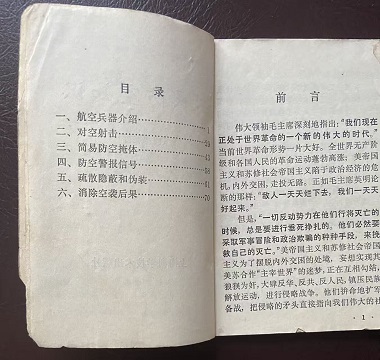 目录
一、航空兵器介绍……1
二、对空射击……24
三、简易防空掩体……43
四、防空警报信号……58
五、疏散隐蔽和伪装……61
六、消除空袭后果……70
前言
伟大领袖毛主席深刻地指出：“我们现在
正处于世界革命的一个新的伟大的时代。”
当前世界革命形势一片大好。全世界无产阶
级和各国人民的革命运动蓬勃高涨；美帝国
主义和苏修社会帝国主义陷于政治经济的危
机，内外交困，走投无路。正如毛主席英明论
断的那样：“敌人一天天烂下去，我们一天天
好起来。”
但是，“一切反动势力在他们行将灭亡的
时候，总是要进行垂死挣扎的。他们必然要
采取军事冒险和政治欺骗的种种手段，来挽
救自己的灭亡。”美帝国主义和苏修社会帝国
主义为了摆脱内外交困的处境，妄想实现其
美苏合作“主宰世界”的迷梦，正在互相勾结，
狼狈为奸，大肆反华、反共、反人民，镇压民族
解放运动，进行侵略战争。他们拼命地扩军
备战，把侵略的矛头直接指向我们伟大的社
·1·